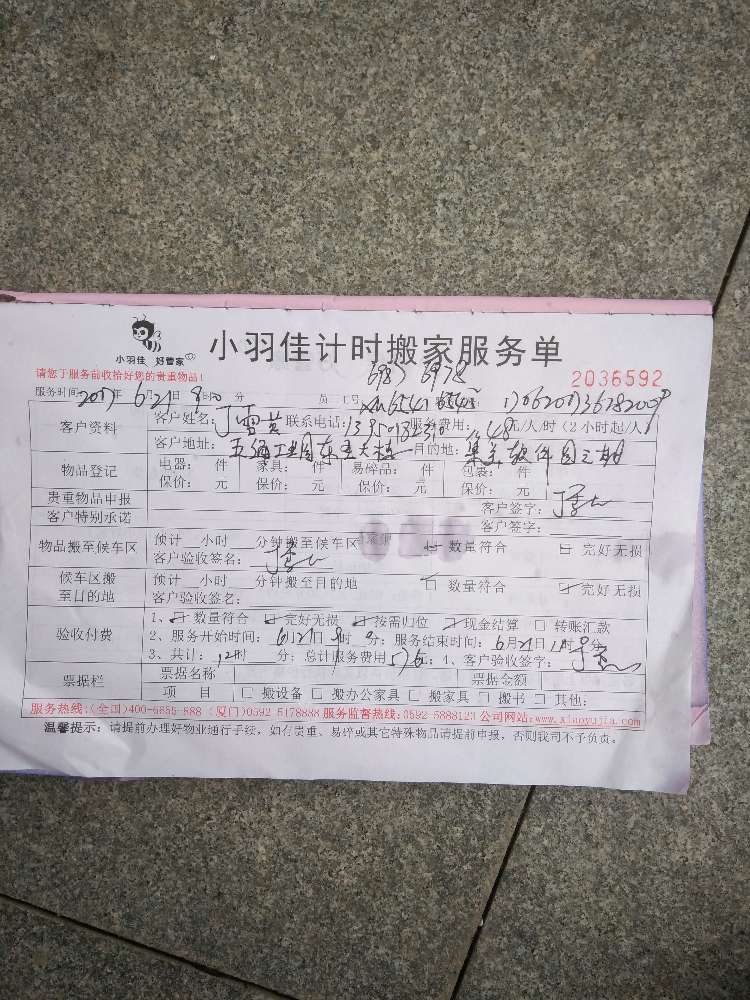 小羽佳 好管家
小羽佳计时搬家服务单
请您于服务前收拾好您的贵重物品!
6987 6978
2036592
服务时间:2017年6月21日9:00分 员工号
客户资料 客户姓名:丁雪 联系电话: 服务费用:48元/人/时(2小时起/人)
客户地址:五通工业园 目的地:集美软件园三期
物品登记 电器: 件 家具: 件 易碎品: 件 包装: 件
保价: 元 保价: 元 保价: 元 保价: 元
贵重物品申报 客户签字:
客户特别承诺 客户签字:
物品搬至候车区 预计 小时 分钟搬至候车区 数量符合 完好无损
客户验收签名:
候车区搬至目的地 预计 小时 分钟搬至目的地 数量符合 完好无损
客户验收签名:
验收付费 1、数量符合 完好无损 按需归位 现金结算 转账汇款
2、服务开始时间:6月21日9时0分;服务结束时间:6月21日 时0分
3、共计:12时 分;总计服务费用576;4、客户验收签字:
票据栏 票据名称 票据金额
项 目 搬设备 搬办公家具 搬家具 搬书 其他:
服务热线:(全国)400-6655-888 (厦门)0592-5178888 服务监督热线:0592-5888123 公司网站:www.xiaoyujia.com
温馨提示:请提前办理好物业通行手续,如有贵重、易碎或其它特殊物品请提前申报,否则我司不予负责。